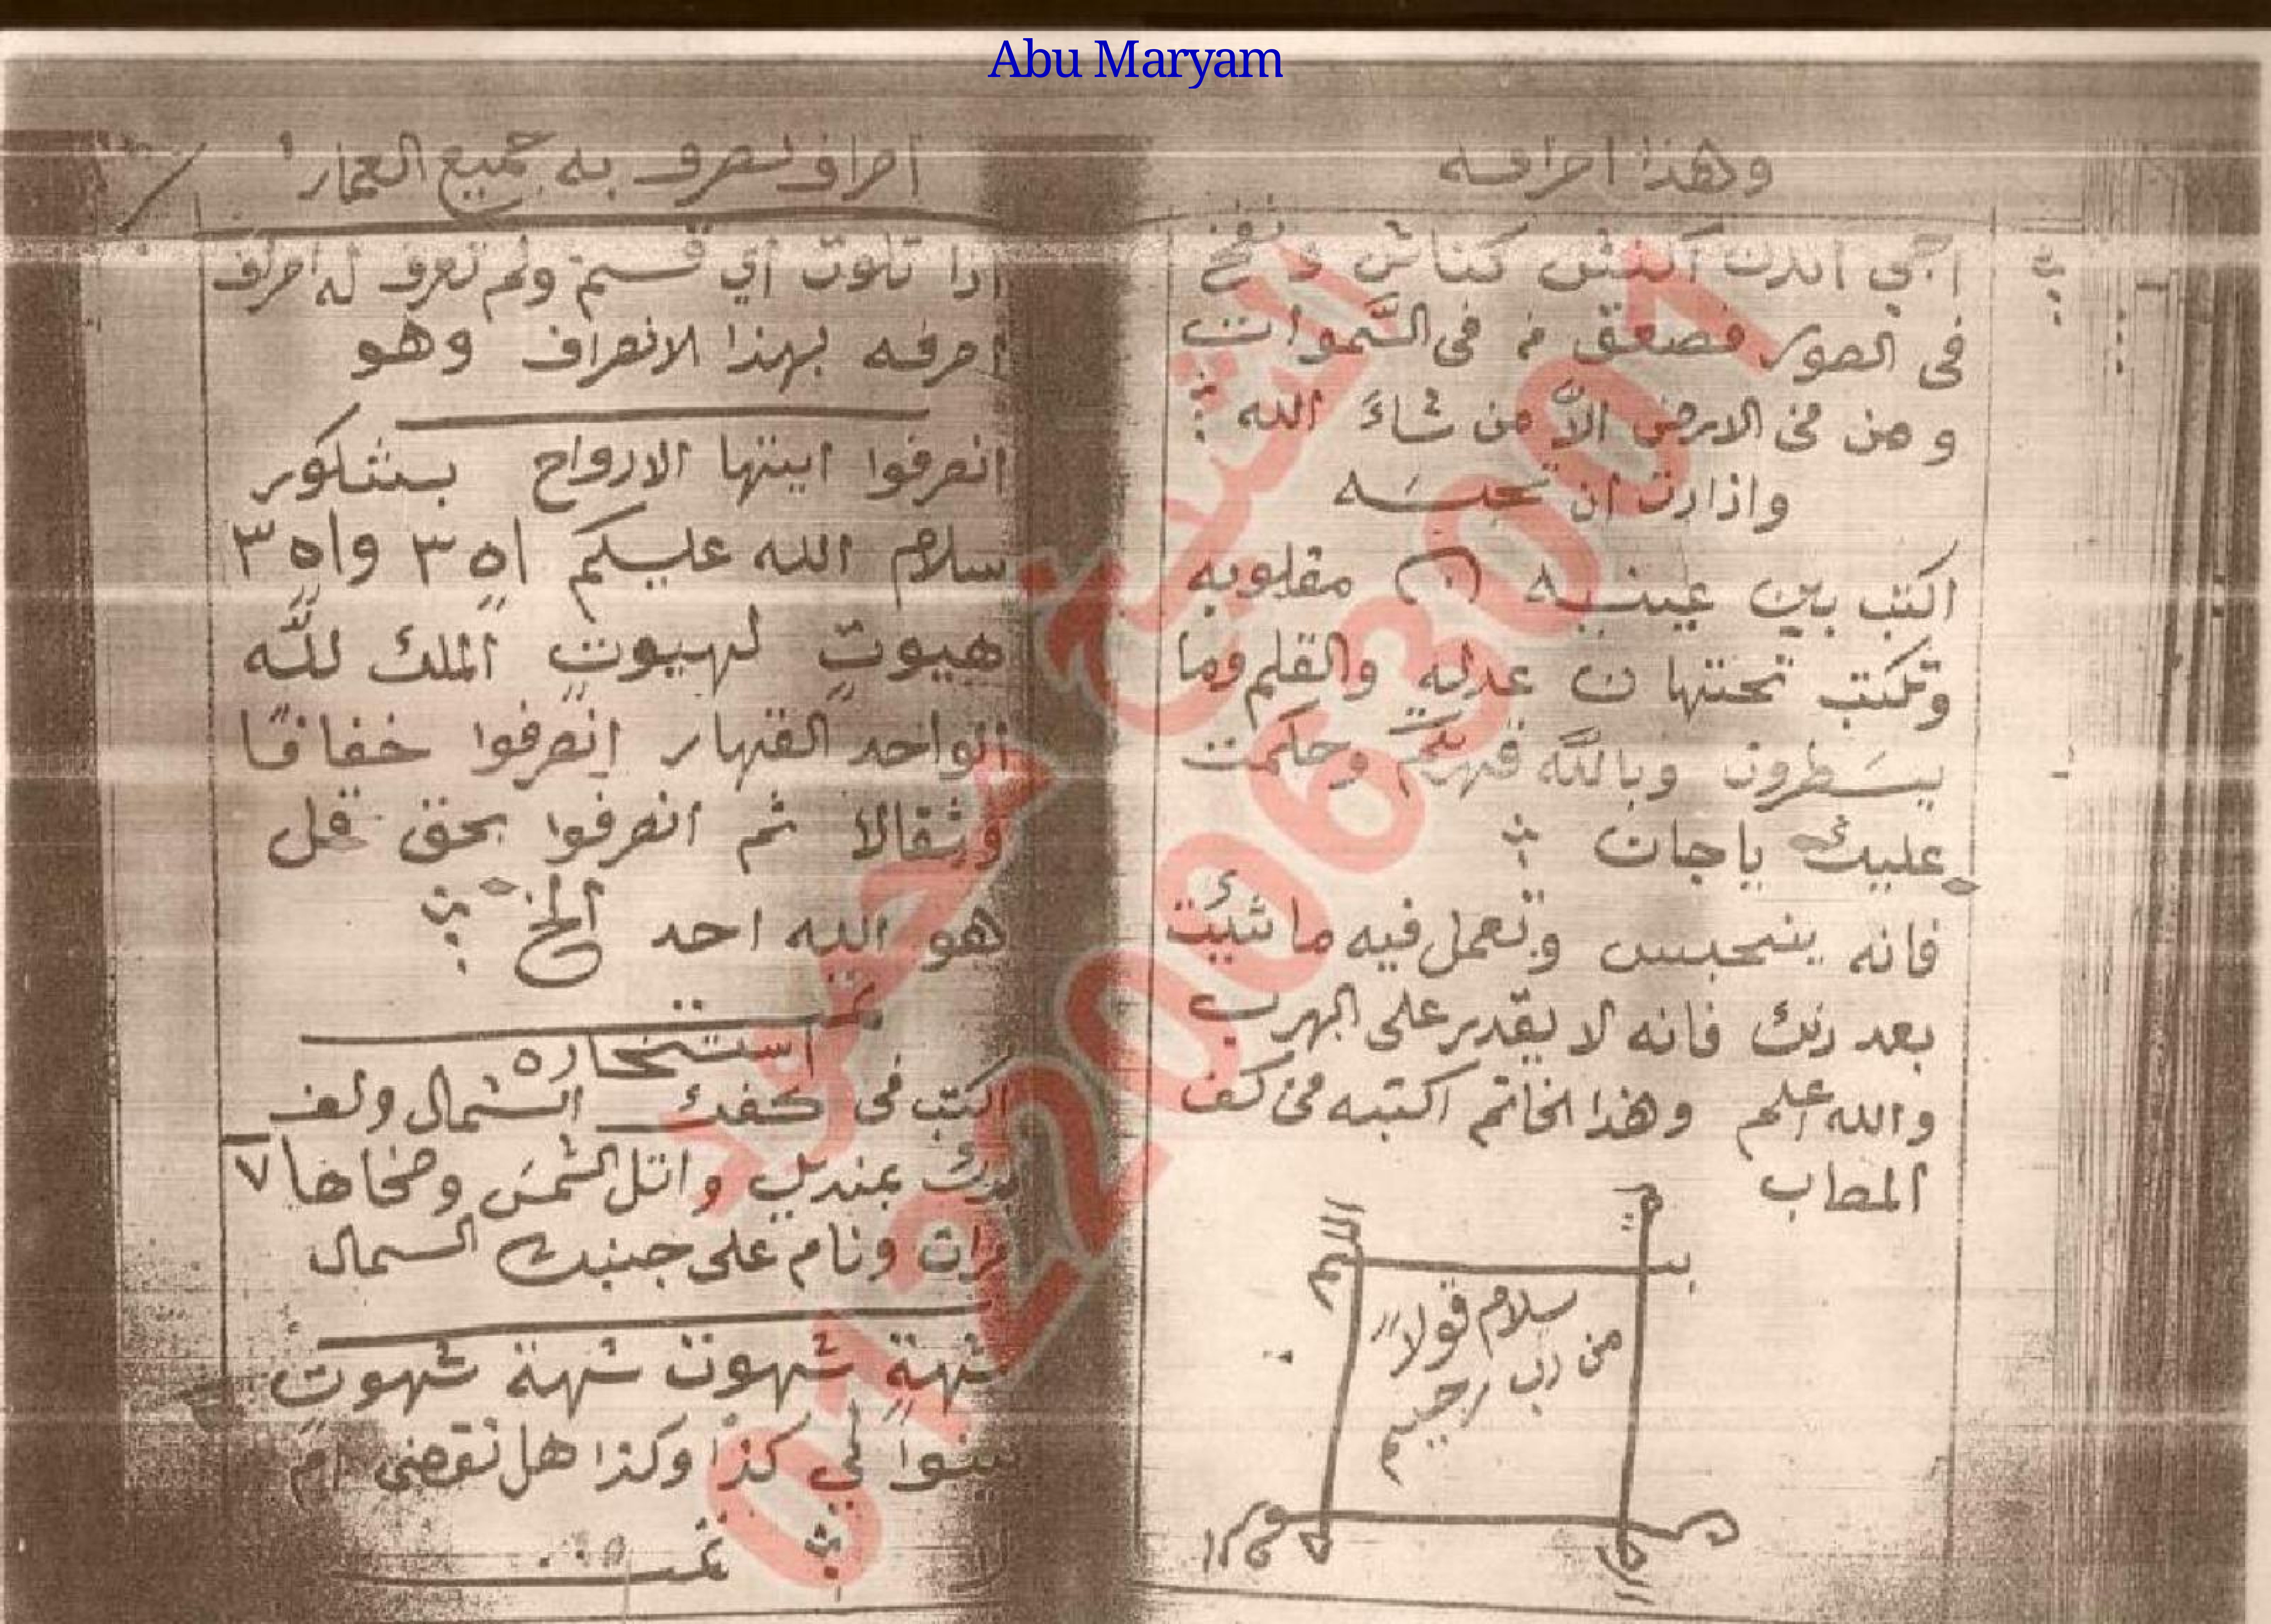 Abu Maryam
وهذا احراقه
اجي اندك اكنش كناش ونفخ
فى الصور فصعق من فى السَّموات
و من فى الارض الاَّ من شاءَ الله
واذا اردت ان تحبسَه
اكتب بين عينيه ن مقلوبه
وتكتب تحتها ن عدله والقلم وما
يسَطرون وبالله قهرتكم وحكمت
عليك ياجان
فانه ينحبس وتعمل فيه ما شئت
بعد ذلك فانه لا يقدر على الهرب
والله اعلم وهذا الخاتم اكتبه فى كف
المصاب
سلام قولاً
من رب رحيم
اصراف تصرف به جميع العمار
اذا تلوت اي قسم ولم تعرف له اصراف
اصرفه بهذا الانصراف وهو
انصرفوا ايتها الارواح بشكور
سلام الله عليكم اه٣ واه٣
هيوتٍ لهيوتٍ الملك للَّه
الواحد القهار انصرفوا خفافًا
وثقالا ثم انصرفوا بحق قل
هو الله احد الخ
تمت
استخاره
اكتب فى كفك الشمال ولف
يدك بمنديل واتل الشمسَ وضحاها ٧
مرات ونام على جنبك الشمال
شهةٍ شهوت شهة شهوتٍ
بينوا لي كذا وكذا هل تقضى ام
لا تمت
الشيخ محمد
01220063001